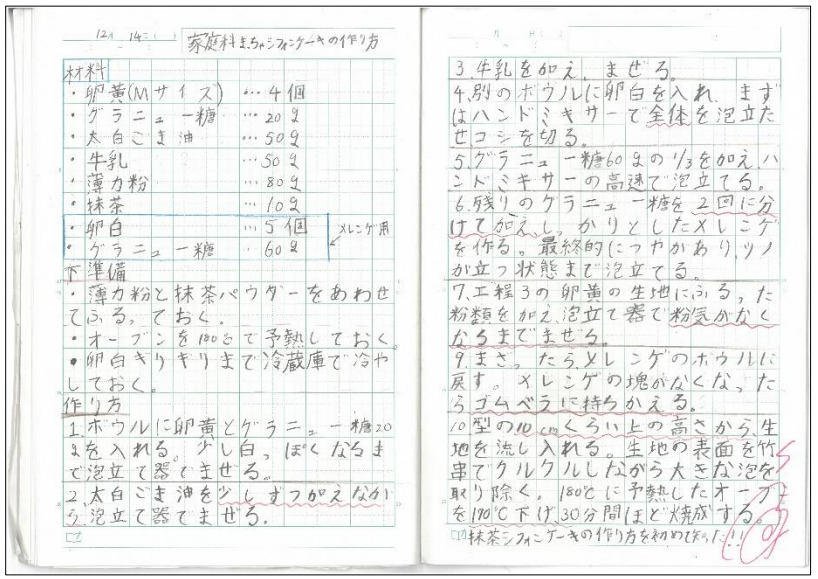 12月 14日( )
家庭科 まっちゃシフォンケーキの作り方
材料
・卵黄(Mサイズ) … 4個
・グラニュー糖 … 20g
・太白ごま油 … 50g
・牛乳 … 50g
・薄力粉 … 80g
・抹茶 … 10g
・卵白 … 5個
メレンゲ用
・グラニュー糖 … 60g
下準備
・薄力粉と抹茶パウダーをあわせ
てふるっておく。
・オーブンを180℃で予熱しておく。
・卵白ギリギリまで冷蔵庫で冷や
しておく。
作り方
1.ボウルに卵黄とグラニュー糖20
gを入れる。少し白っぽくなるま
で泡立て器でまぜる。
2.太白ごま油を少しずつがえなが
ら、泡立て器でまぜる。
3.牛乳を加え、まぜる。
4.別のボウルに卵白を入れ、まず
はハンドミキサーで全体を泡立た
せ、コシを切る。
5.グラニュー糖60gの1/3を加え、ハ
ンドミキサーの高速で泡立てる。
6.残りのグラニュー糖を2回に分
けて加え、しっかりとしたメレンゲ
を作る。最終的につやがあり、ツノ
が立つ状態まで泡立てる。
7.工程3の卵黄の生地にふるった
粉類を加え、泡立て器で粉気がなく
なるまでまぜる。
9.まざったら、メレンゲのボウルに
戻す。メレンゲの塊がなくなった
らゴムベラに持ちかえる。
10型の10cmくらい上の高さから、生
地を流し入れる。生地の表面を竹
串でクルクルしながら大きな泡を
取り除く。180℃に予熱したオーブン
を170℃下げ、30分間ほど焼成する。
抹茶シフォンケーキの作り方を初めて知った!!